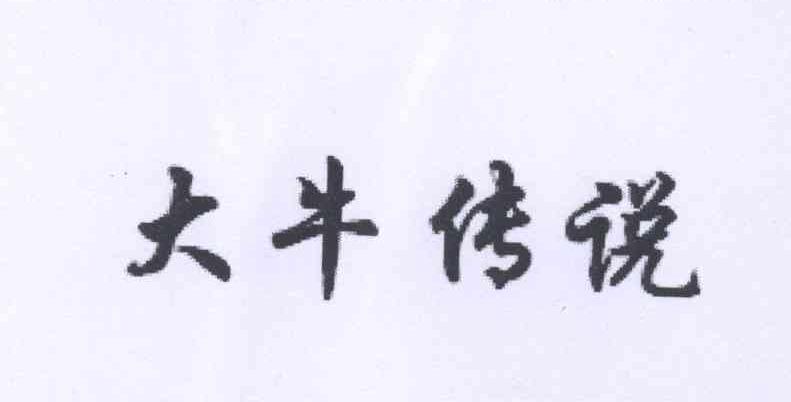 大牛传说